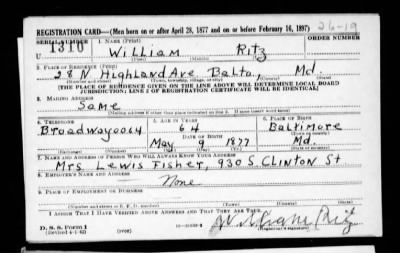 REGISTRATION CARD—(Men born on or after April 28, 1877 and on or before February 16, 1897)
SERIAL NUMBER
1. NAME (Print)
ORDER NUMBER
1310
William Ritz
(First) (Middle) (Last)
2. PLACE OF RESIDENCE (Print)
38 N Highland Ave Balto. Md.
(Number and street) (Town, township, village, or city) (County) (State)
[THE PLACE OF RESIDENCE GIVEN ON THE LINE ABOVE WILL DETERMINE LOCAL BOARD
JURISDICTION; LINE 2 OF REGISTRATION CERTIFICATE WILL BE IDENTICAL]
3. MAILING ADDRESS
Same
[Mailing address if other than place indicated on line 2. If same insert word same]
4. TELEPHONE
5. AGE IN YEARS
6. PLACE OF BIRTH
Broadway 0064
64
Baltimore
DATE OF BIRTH
(Town or county)
May 9 1877
Md.
(Exchange) (Number)
(Mo.) (Day) (Yr.)
(State or country)
7. NAME AND ADDRESS OF PERSON WHO WILL ALWAYS KNOW YOUR ADDRESS
Mrs. Lewis Fisher, 930 S. Clinton St
8. EMPLOYER'S NAME AND ADDRESS
None
9. PLACE OF EMPLOYMENT OR BUSINESS
(Number and street or R. F. D. number) (Town) (County) (State)
I AFFIRM THAT I HAVE VERIFIED ABOVE ANSWERS AND THAT THEY ARE TRUE.
D. S. S. Form 1
(Revised 4-1-42) (over)
(Registrant's signature)